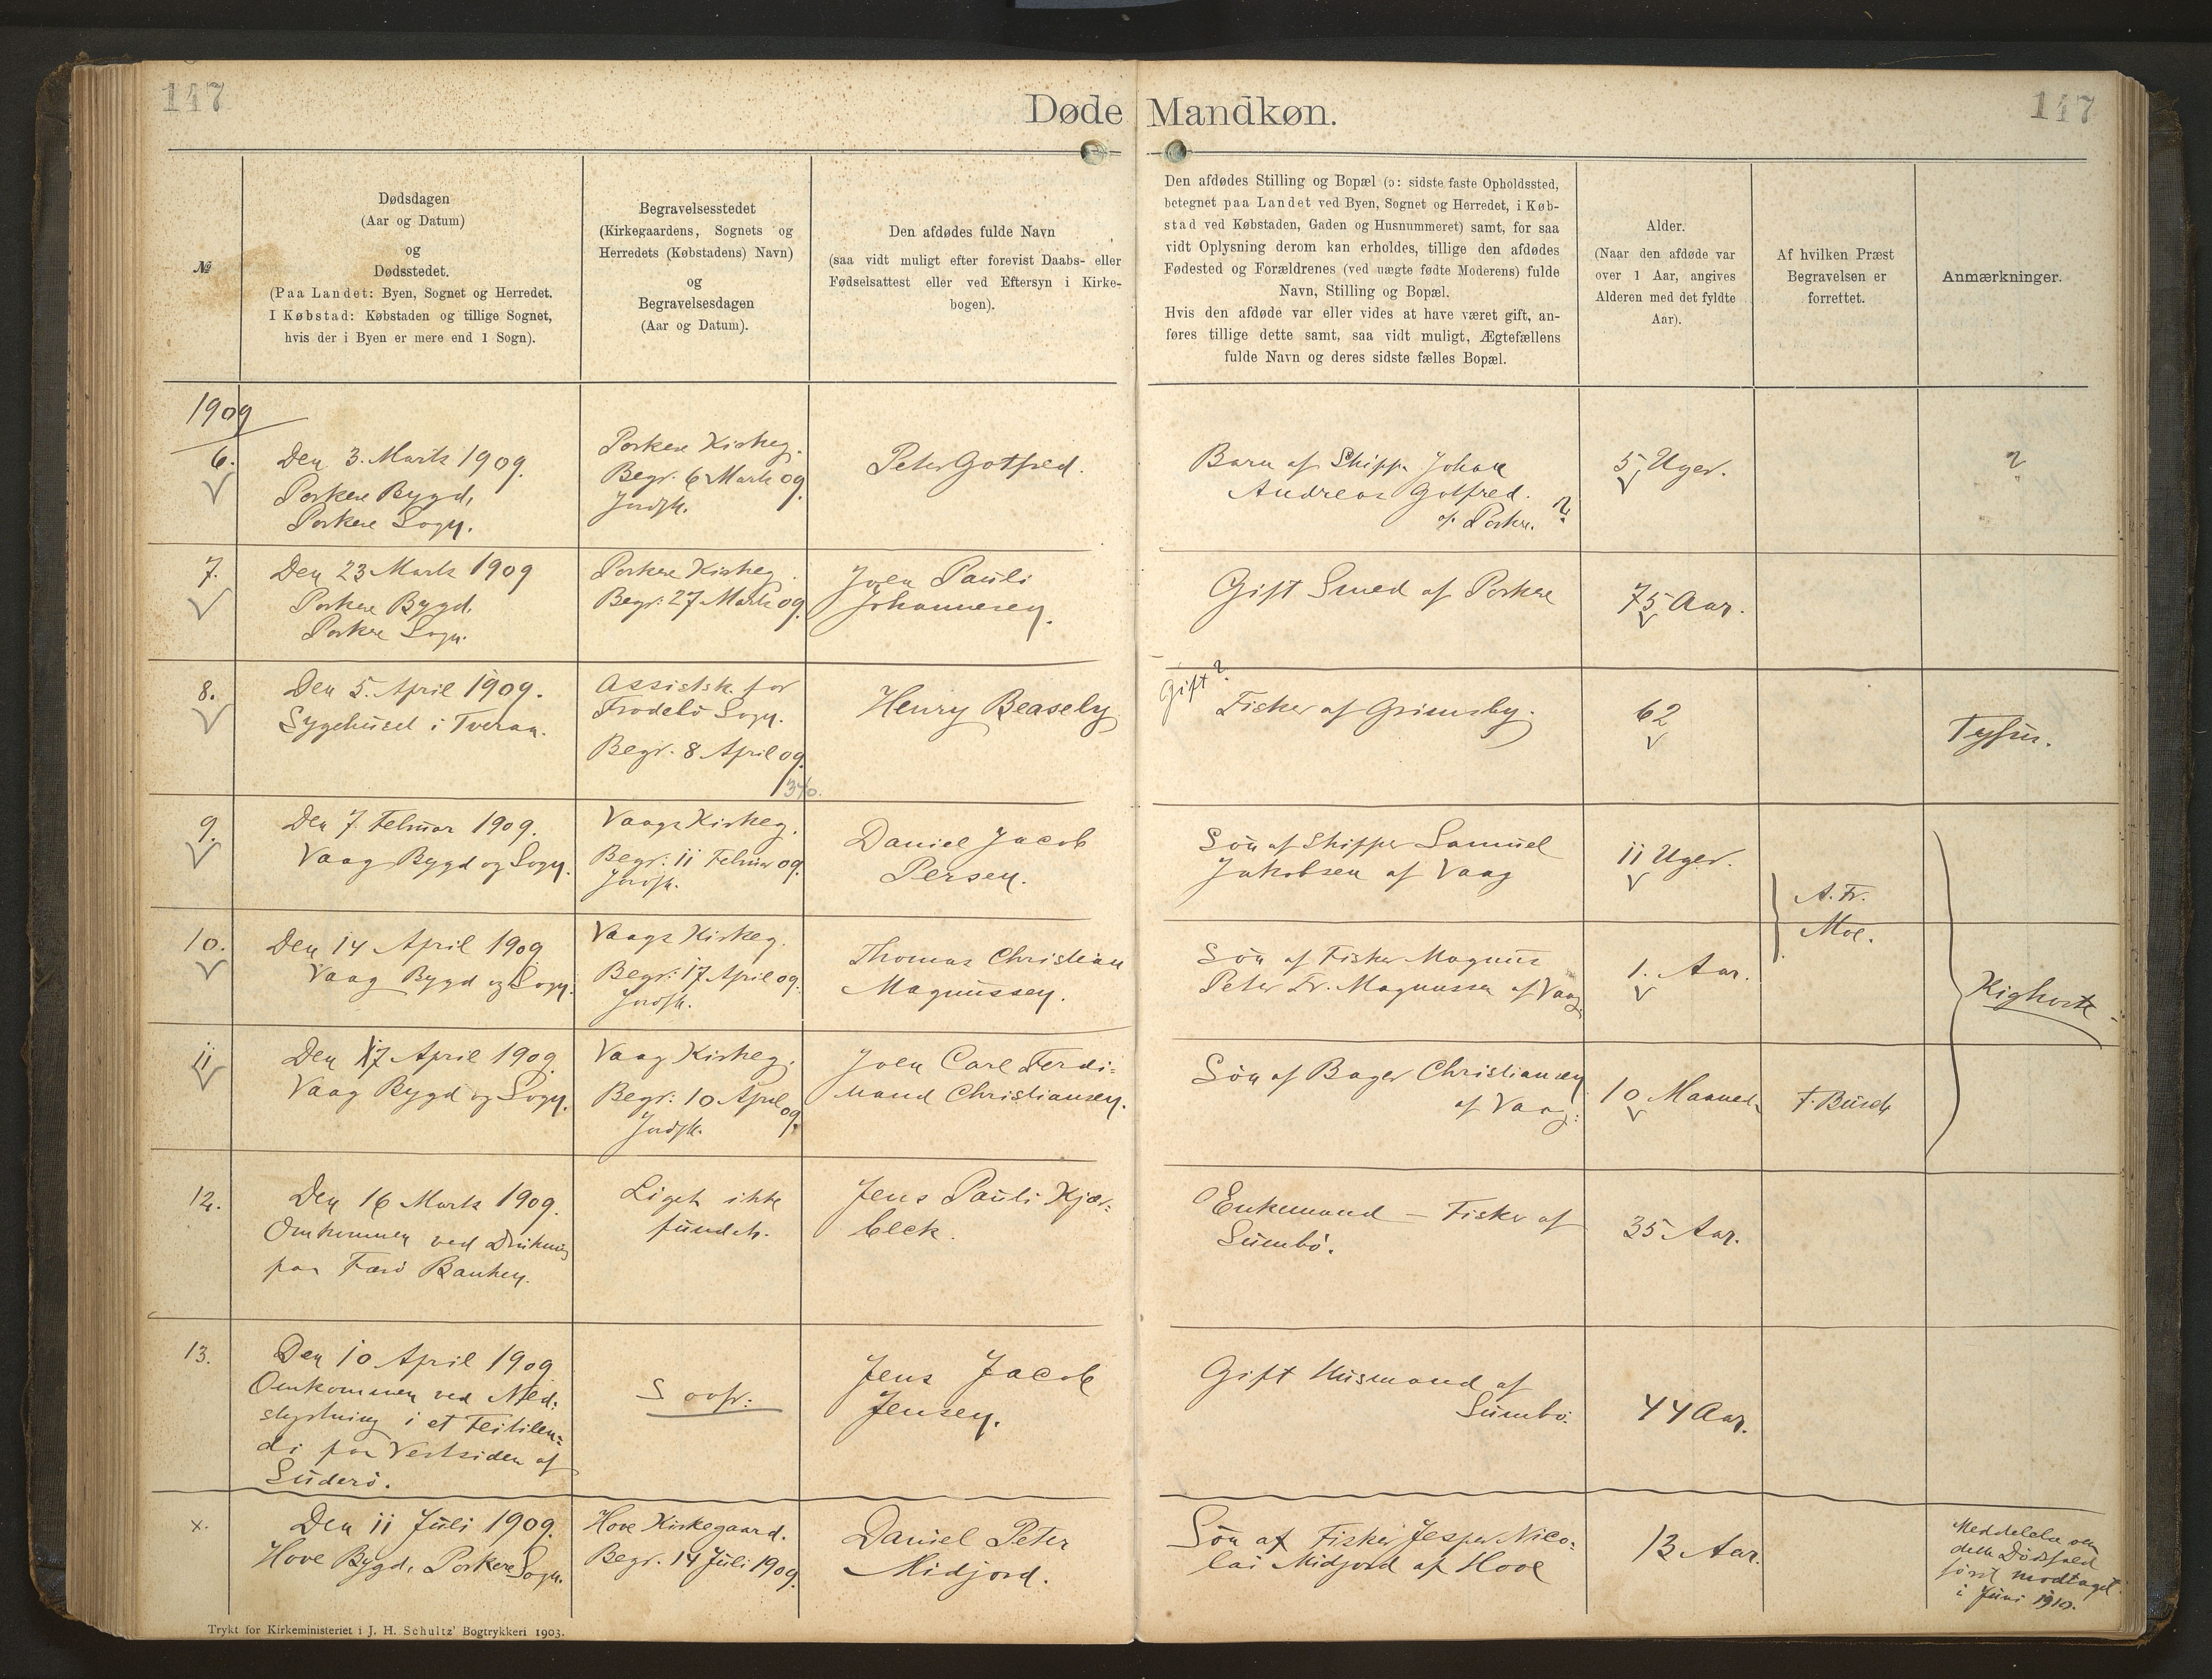 147
Døde Mandkøn.
147
№
Dødsdagen
(Aar og Datum)
og
Dødsstedet.
(Paa Landet: Byen, Sognet og Herredet.
I Købstad: Købstaden og tillige Sognet,
hvis der i Byen er mere end 1 Sogn).
Begravelsesstedet
(Kirkegaardens, Sognets og
Herredets (Købstadens) Navn)
og
Begravelsesdagen
(Aar og Datum).
Den afdødes fulde Navn
(saa vidt muligt efter forevist Daabs- eller
Fødselsattest eller ved Eftersyn i Kirke-
bogen).
Den afdødes Stilling og Bopæl (ɔ: sidste faste Opholdssted,
betegnet paa Landet ved Byen, Sognet og Herredet, i Køb-
stad ved Købstaden, Gaden og Husnummeret) samt, for saa
vidt Oplysning derom kan erholdes, tillige den afdødes
Fødested og Forældrenes (ved uægte fødte Moderens) fulde
Navn, Stilling og Bopæl.
Hvis den afdøde var eller vides at have været gift, an-
føres tillige dette samt, saa vidt muligt, Ægtefællens
fulde Navn og deres sidste fælles Bopæl.
Alder.
(Naar den afdøde var
over 1 Aar, angives
Alderen med det fyldte
Aar).
Af hvilken Præst
Begravelsen er
forrettet.
Anmærkninger.
1909
6.
Den 3. Marts 1909.
Porkere Bygd,
Porkere Sogn.
Porkere Kirkeg.
Begr. 6 Marts 09.
Jordfk.
Peter Gotfred.
Barn af Skippr Johan
Andreas Gotfred.
af Porkere. ?
5 Uger.
?
7.
Den 23 Marts 1909
Porkere Bygd.
Porkere Sogn.
Porkere Kirkeg.
Begr. 27 Marts 09.
Joen Pauli
Johannesen.
Gift Smed af Porkere
75 Aar.
8.
Den 5. April 1909.
Sygehuset i Tveraa.
Assistsk. for
Frodebö Sogn.
Begr. 8 April 09.
Henry Beasely
Gift?
Fisker af Grimsby.
62
Tyfus.
9.
Den 7. Februar 1909.
Vaag Bygd og Sogn.
Vaags Kirkeg.
Begr. 11 Februar 09.
Jordfk.
Daniel Jacob
Persen.
Sön af Skipper Samuel
Jakobsen af Vaag
11 Uger.
A. Fr.
Moe.
10.
Den 14 April 1909
Vaag Bygd og Sogn.
Vaags Kirkeg.
Begr. 17 April 09.
Jordfk.
Thomas Christian
Magnussen.
Sön af Fisker Magnus
Peter Fr. Magnussen af Vaag.
1. Aar.
Kighoste
11
Den 17 April 1909
Vaag Bygd og Sogn.
Vaag Kirkeg.
Begr. 10 April 09.
Jordfk.
Joen Carl Ferdi=
nand Christiansen.
Sön af Bager Christiansen
af Vaag.
10 Maaned.
F. Busch
12.
Den 16 Marts 1909.
Omkommen ved Drukning
paa Færö Banken.
Liget ikke
fundet.
Jens Pauli Kjær=
beck.
Enkemand – Fisker af
Sumbö.
35 Aar.
13.
Den 10 April 1909
Omkommen ved Ned=
styrtning i et
paa Vestsiden af
Suderö.
S ovfr:
Jens Jacob
Jensen.
Gift Husmand af
Sumbö.
44 Aar.
x.
Den 11 Juli 1909.
Hove Bygd, Porkere Sogn.
Hove Kirkegaard.
Begr. 14 Juli 1909.
Daniel Peter
Midjord.
Sön af Fisker Jesper Nico=
lai Midjord af Hove
13 Aar.
Meddelelse om
dette Dödsfald
först modtaget
i Juni 1910.
Trykt for Kirkeministeriet i J. H. Schultz' Bogtrykkeri 1903.